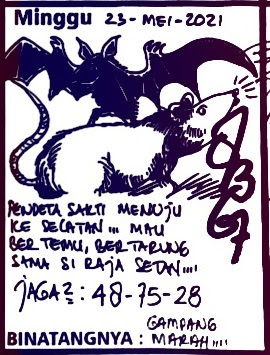 Minggu 23-MEI-2021
PENDETA SAKTI MENUJU
KE SELATAN... MAU
BERTEMU, BERTARUNG
SAMA SI RAJA SETAN....
JAGA2 : 48-75-28
BINATANGNYA : GAMPANG
MARAH....